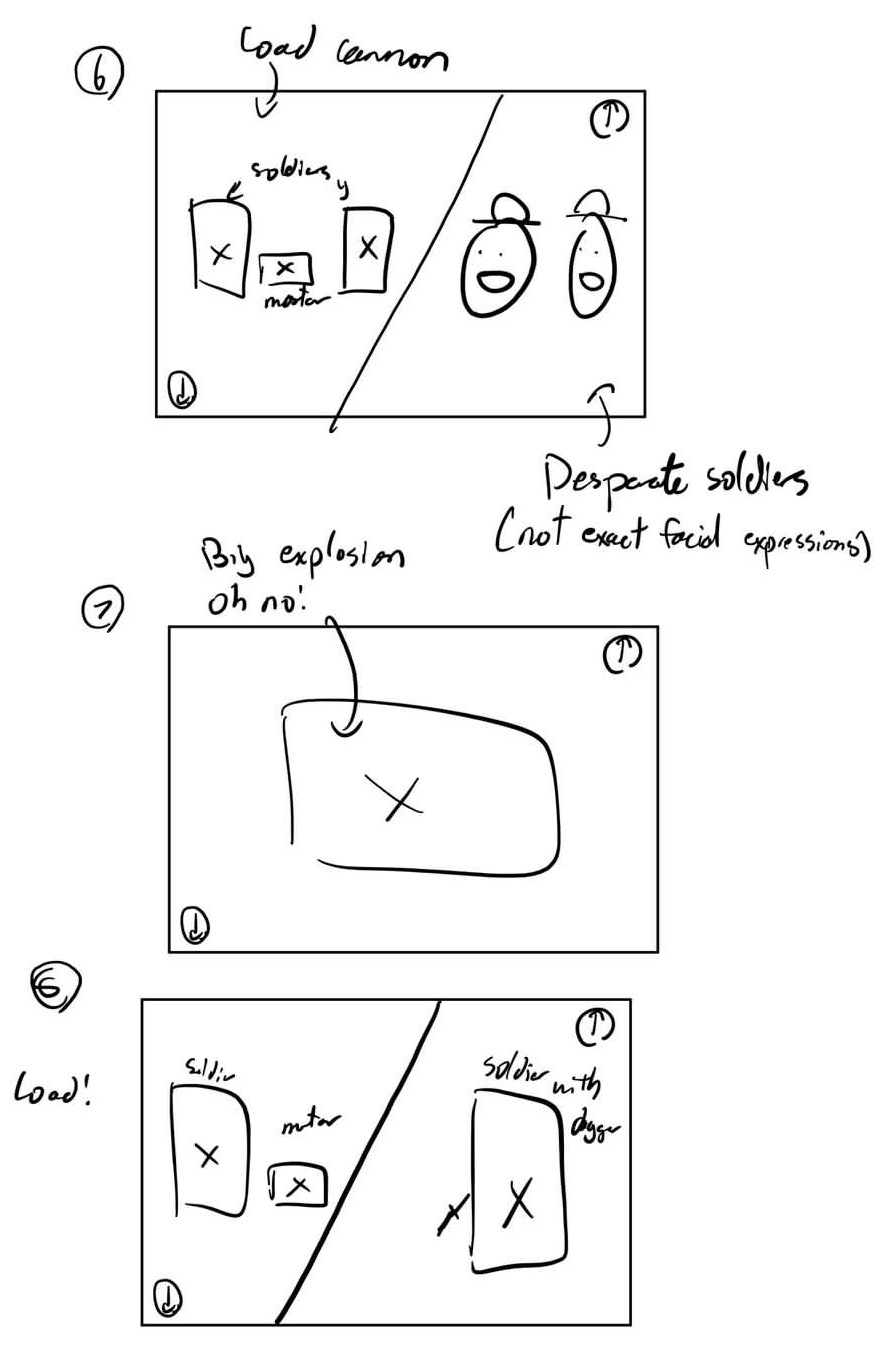 6
Load cannon
soldiers
mortar
Desparate soldiers
(not exact facial expressions)
7
Big explosion
oh no!
Load!
soldier
mortar
soldier with
dagger